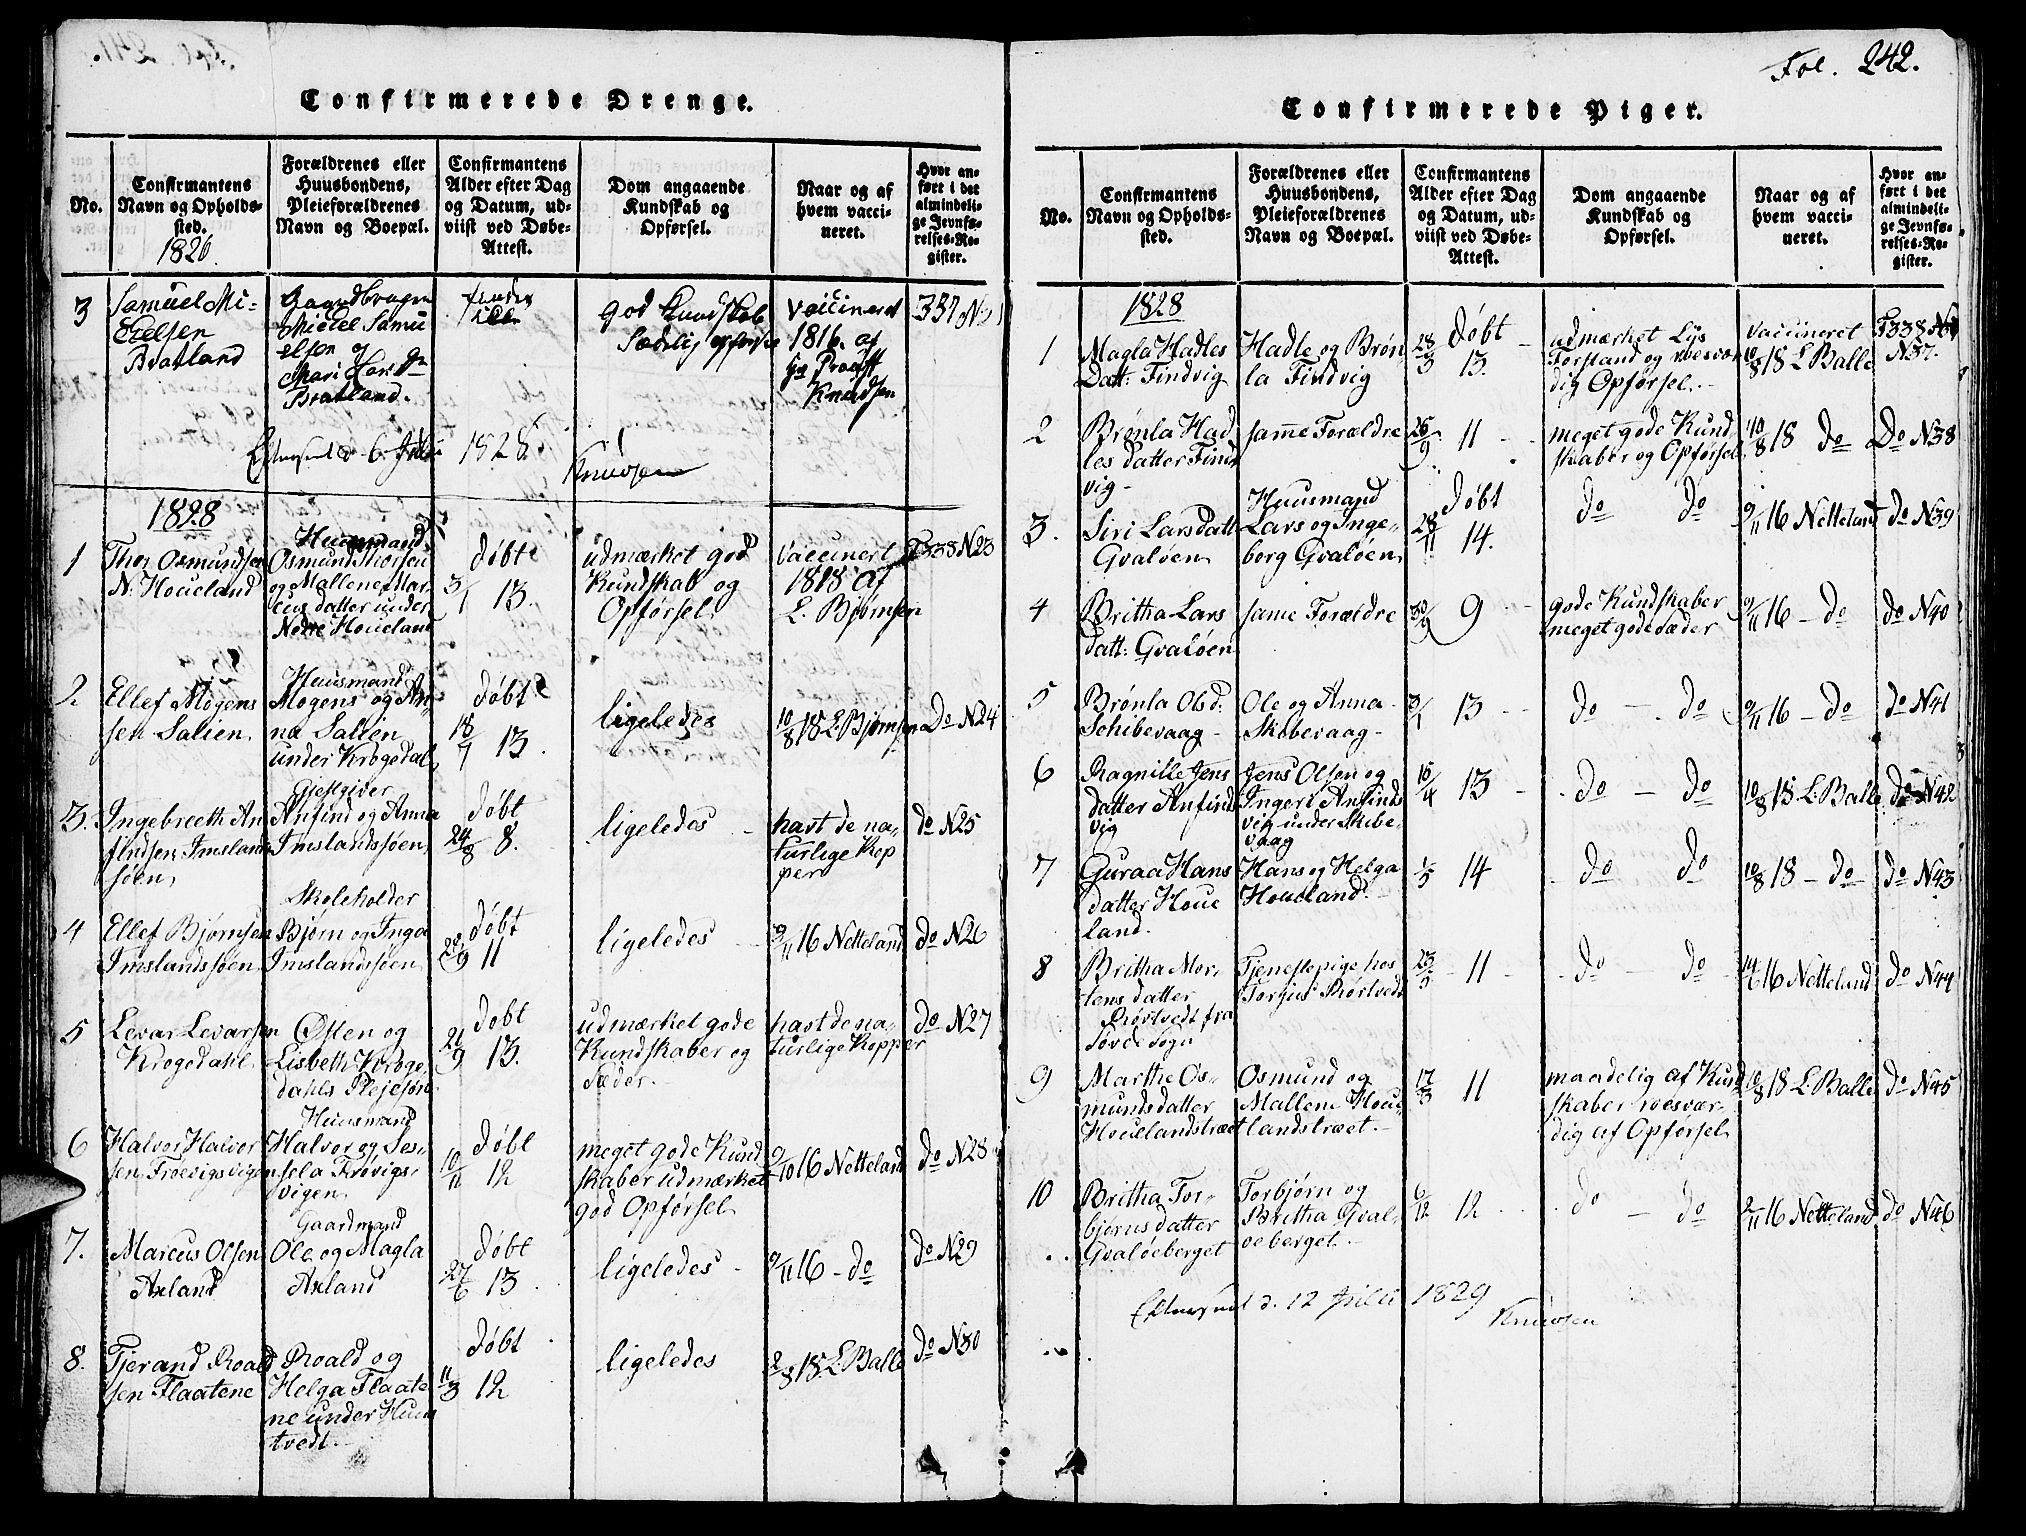 Confirmerede Drenge.
No.
Confirmantens
Navn og Opholds-
sted.
1826.
Forældrenes eller
Huusbondens,
Pleieforældrenes
Navn og Boepæl.
Confirmantens
Alder efter Dag
og Datum, ud-
viist ved Døbe-
Attest.
Dom angaaende
Kundskab og
Opførsel.
Naar og af
hvem vacci-
neret.
Hvor an-
ført i det
almindeli-
ge Jevnfø-
relses-Re-
gister.
3
Samuel Mi-
Bratland
Samu
elsen og
Bratland.
god Kundskab
Sædelig opførsel
Vaccineret
1816. af
Hr Provst
Knudsen
337 N21
1828.
Knudsen
1828
1
Thor Osmundsen
N. Houeland
Huusmand
Osmund Thorsen
og Mallene Mar-
cus datter under
Nedre Houeland
døbt
3/1 13.
udmærket god
Kundskab og
Opførsel
Vaccinert
1818 af
E. Bjørnsen
F338 N23
2
Ellef Mogens
sen Salien
Huusmand
Mogens og An-
na Salien
under Krogedal
døbt
18/7 13.
ligeledes
10/8 18 E. Bjørnsen
Do N24
3.
Ingebreeth An
findsen Imslands
søen
Giestgiver
Anfind og Anna
Imslandssøen
døbt
24/8 8.
ligeledes
havt de na-
turlige Kop
per
do N25
4
Ellef Bjørnsen
Imslandssøen
Skoleholder
Bjørn og Inga
Imslandssøen
døbt
29/9 11
ligeledes
9/11 16 Netteland
do N26
5
Levar Levarsen
Krogedahl
Østen og
Lisbeth Kroge-
dahls Plejesøn
døbt
21/9 13.
udmærket gode
Kundskaber og
Sæder.
havt de na-
turlige Kopper
do N27
6
Halvor Halvor
sen Frøevigsvigen
Huusmand
Halvor og Ses-
sela Frøvigs-
vigen
døbt
10/11 12
meget gode Kund
skaber udmærket
god Opførsel
9/10 16 Netteland
do N28
7.
Marcus Olsen
Axland
Gaardmand
Ole og Magla
Axland
døbt
27/6 13
ligeledes
9/11 16 - do
do N29
8.
Tjerand Roald
sen Flaatene
Roald og
Helga Flaate
ne under Huus
tvedt
døbt
11/3 12
ligeledes
2/8 18 E. Balle
do N30
Fol. 242.
Confirmerede Piger.
No.
Confirmantens
Navn og Opholds-
sted.
Forældrenes eller
Huusbondens,
Pleieforældrenes
Navn og Boepæl.
Confirmantens
Alder efter Dag
og Datum, ud-
viist ved Døbe-
Attest.
Dom angaaende
Kundskab og
Opførsel.
Naar og af
hvem vacci-
neret.
Hvor an-
ført i det
almindeli-
ge Jevnfø-
relses-Re-
gister.
1828
1
Magla Hadles
Datt: Findvig
Hadle og Brøn
la Findvig
døbt
28/3 13.
udmærket Lys
Forstand og roesvær
dig Opførsel.
Vaccineret
10/8 18 E. Balle
F338
N37.
2
Brønla Had
les datter Find
vig
samme Forældre
26/9 11
meget gode Kund
skaber og Opførsel
10/8 18 do
Do N38
3.
Siri Larsdatt
Gvaløen
Huusmand
Lars og Inge-
borg Gvaløen
døbt
28/11 14.
do do
9/11 16 Netteland
do N39
4
Britha Lars
datt: Gvaløen
same Forældre
30/9 9
gode Kundskaber
meget gode Sæder
9/11 16 - do
do N40
5
Brønla Olsd:
Schibevaag
Ole og Anna
Skibevaag
3/1 13
do - do
9/11 16 - do
do N41
6
Ragnille Jens
datter Anfinds
vig
Jens Olsen og
Ingeri Anfinds
vig under Skibe-
vaag
16/4 13
do - do
10/8 18 E. Balle
do N42
7
Guraa Hans
datter Houe
land.
Hans og Helga
Houeland.
1/5 14
do do
10/8 18 - do
do N43
8
Britha Mor-
tens datter
Rørtvedt fra
Søvde Sogn
Tjenestepige hos
Torjus Rørtvedt
23/5 11
do - do
14/6 16 Netteland
do N44
9
Marthe Os-
mundsdatter
Houelandstræet
Osmund og
Mallene Houe
landstræet.
12/3 11
maadelig af Kund
skaber roesvær-
dig af Opførsel
10/8 18 E. Balle
do N45
10
Britha Tor-
bjørnsdatter
Gvaløeberget
Torbjørn og
Britha Gval-
øeberget.
6/12 12
do - do
2/11 16 Netteland
do N46
Efterseet d. 12 Julii 1829
Knudsen